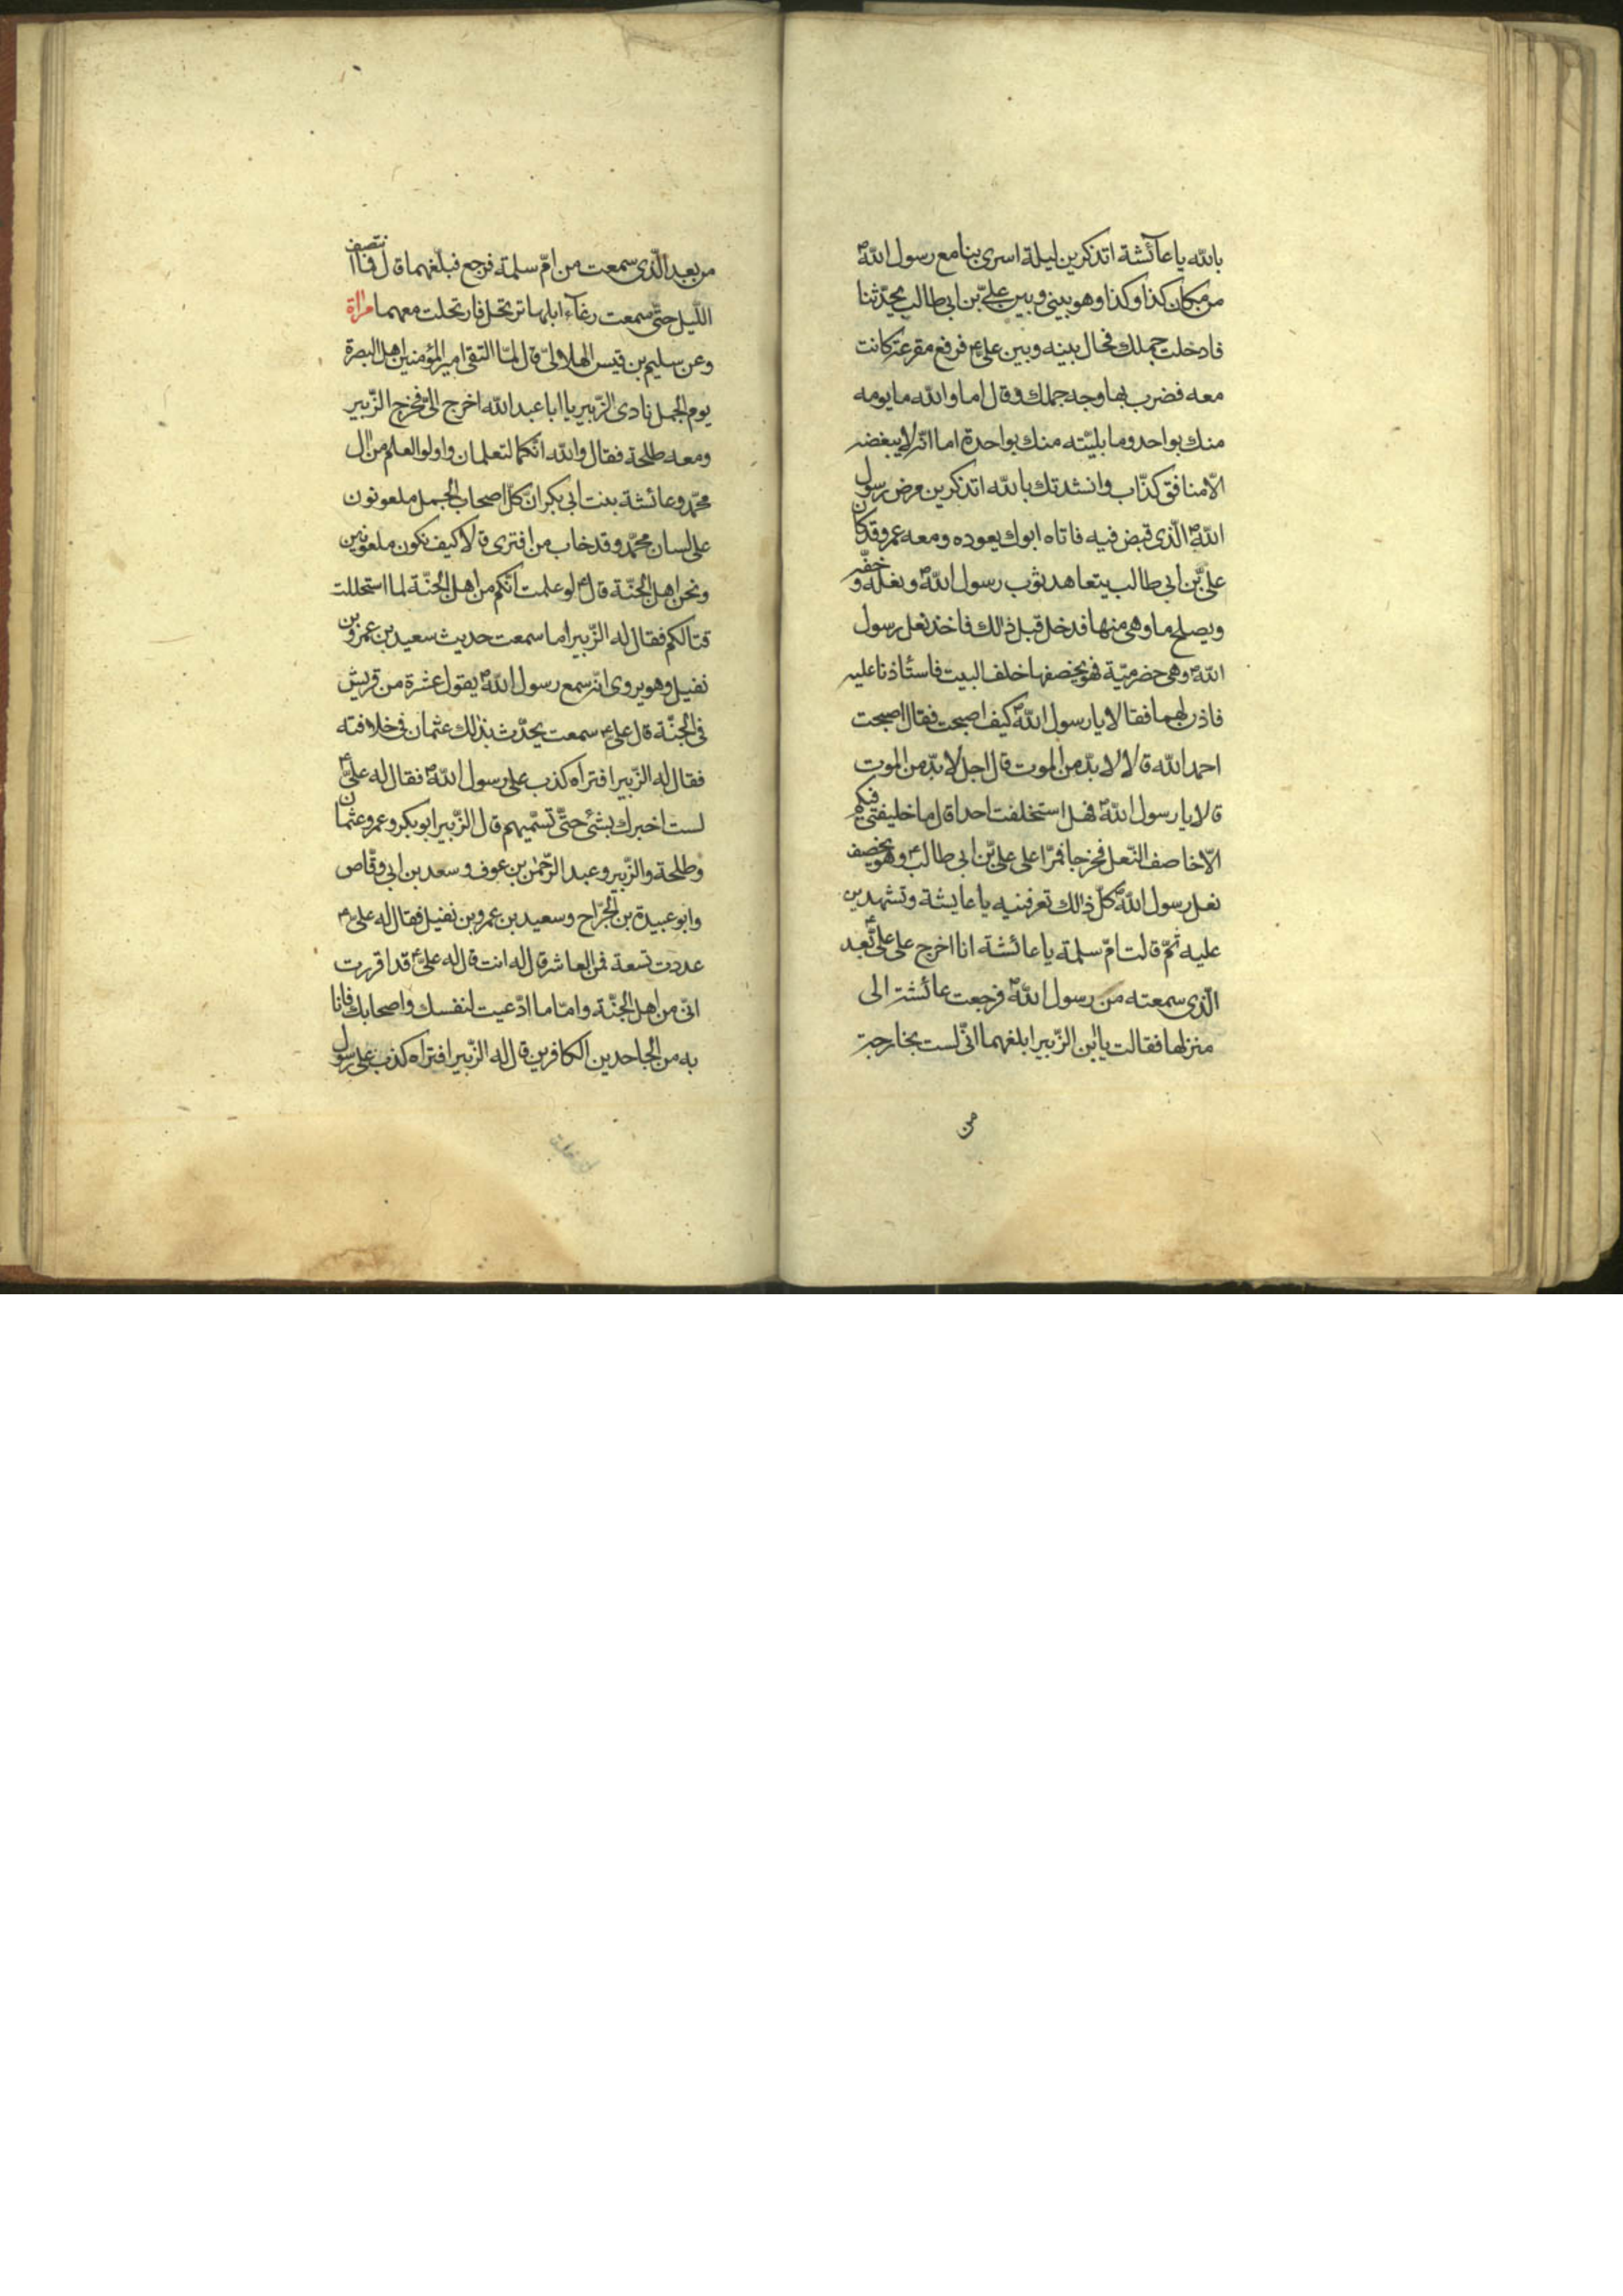 بالله يا عآئشة اتذكرين ليلة اسرى بنا مع رسول اللهص
من مكان كذا وكذا وهو بيني وبين علىّ بن ابي طالب يحدّثنا
فادخلت جملك فحال بينه وبين علىع فرفع مقرعة كانت
معه فضرب بها وجه جملك وقال اما والله ما يومه
منك بواحد وما بليّته منك بواحدة اما انّه لا يبغضه
الّا منافق كذّاب وانشدتك بالله اتذكرين مرض رسول
اللهص الّذى قبض فيه فاتاه ابوك يعوده ومعه عمر وقد كان
علىّ بن ابي طالب يتعاهد ثوب رسول اللهص ونعله وخفّه
ويصلح ما وهى منها فدخل قبل ذلك فاخذ نعل رسول
اللهص وهى حضرميّة فهو يخصفها خلف البيت فاستأذنا عليه
فاذن لهما فقالا يا رسول اللهص كيف اصبحت فقال اصبحت
احمد الله قالا لا بدّ من الموت قال اجل لا بدّ من الموت
قالا يا رسول اللهص فهل استخلفت احدا قال ما خليفتى فيكم
الّا خاصف النّعل فخرجا فمرّا على علىّ بن ابي طالبع وهو يخصف
نعل رسول اللهص كلّ ذلك تعرفينه يا عايشة وتشهدين
عليه ثمّ قالت امّ سلمة يا عائشة انا اخرج على علىع بعد
الّذى سمعته من رسول اللهص فرجعت عائشة الى
منزلها فقالت يا ابن الزّبير ابلغهما انّى لست بخارجة
من
من بعد الّذى سمعت من امّ سلمة فرجع فبلّغهما قال فما انتصف
اللّيل حتّى سمعت رغآء ابلها ترتحل فارتحلت معهما
وعن سليم بن قيس الهلالىّ قال لمّا التقى امير المؤمنين اهل البصرة
يوم الجمل نادى الزّبير يا ابا عبد الله اخرج الىّ فخرج الزّبير
ومعه طلحة فقال والله انّكما لتعلمان واولوا العلم من ال
محمّد وعائشة بنت ابي بكر انّ كلّ اصحاب الجمل ملعونون
على لسان محمّد وقد خاب من افترى قالا كيف نكون ملعونين
ونحن اهل الجنّة قالع لو علمت انّكم من اهل الجنّة لما استحللت
قتالكم فقال له الزّبير اما سمعت حديث سعيد بن عمرو بن
نفيل وهو يروى انّه سمع رسول اللهص يقول عشرة من قريش
فى الجنّة قال علىع سمعت يحدّث بذلك عثمان فى خلافته
فقال له الزّبير افتراه كذب على رسول اللهص فقال له علىّع
لست اخبرك بشئ حتّى تسمّيهم قال الزّبير ابو بكر وعمر وعثمان
وطلحة والزّبير وعبد الرّحمن بن عوف وسعد بن ابي وقّاص
وابو عبيدة بن الجرّاح وسعيد بن عمرو بن نفيل فقال له علىع
عددت تسعة فمن العاشر قال له انت قال له علىّع قد اقررت
انّى من اهل الجنّة وامّا ما ادّعيت لنفسك واصحابك فانا
به من الجاحدين الكافرين قال له الزّبير افتراه كذب على رسول